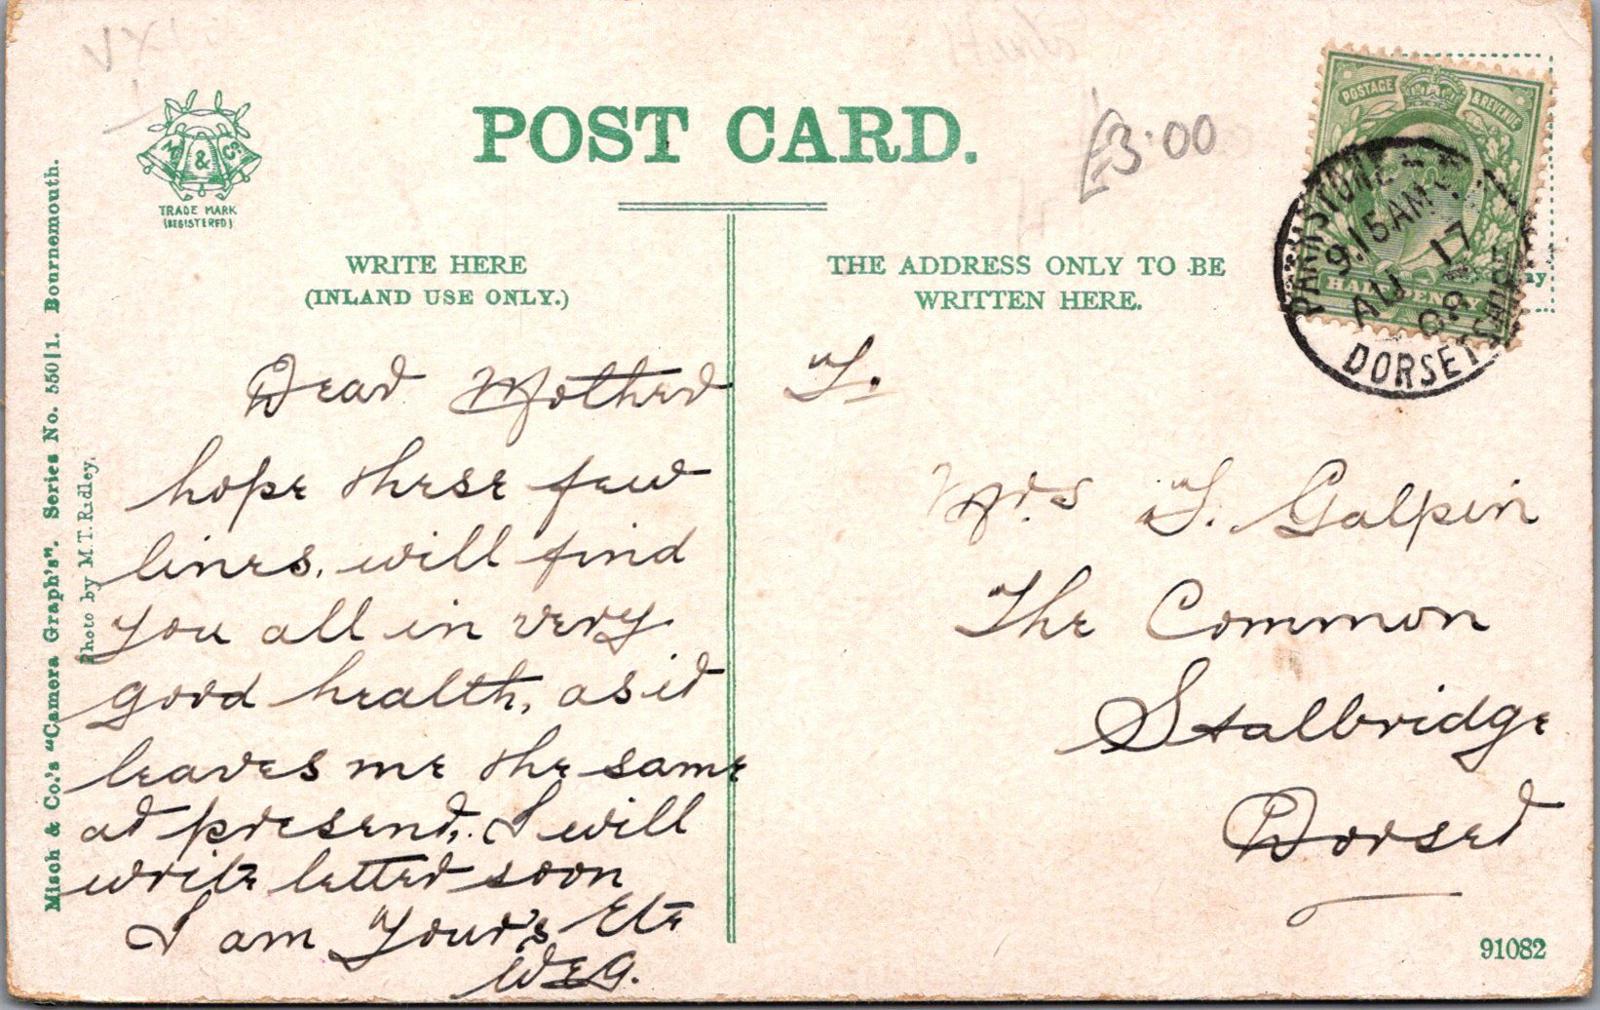 POST CARD.
£3.00
M & Co
TRADE MARK
(REGISTERED)
POSTAGE & REVENUE
HALFPENNY
PARKSTONE
9.15 AM
AU 17
08
DORSET
WRITE HERE
(INLAND USE ONLY.)
THE ADDRESS ONLY TO BE
WRITTEN HERE.
Misch & Co.'s "Camera Graph's". Series No. 550|1. Bournemouth.
Photo by M.T. Ridley.
Dear Mother
hope these few
lines, will find
you all in very
good health, as it
leaves me the same
at present, I will
write letter soon
I am Your's Etc
W.E.G.
T.
Mrs T. Galpin
The Common
Stalbridge
Dorset
91082